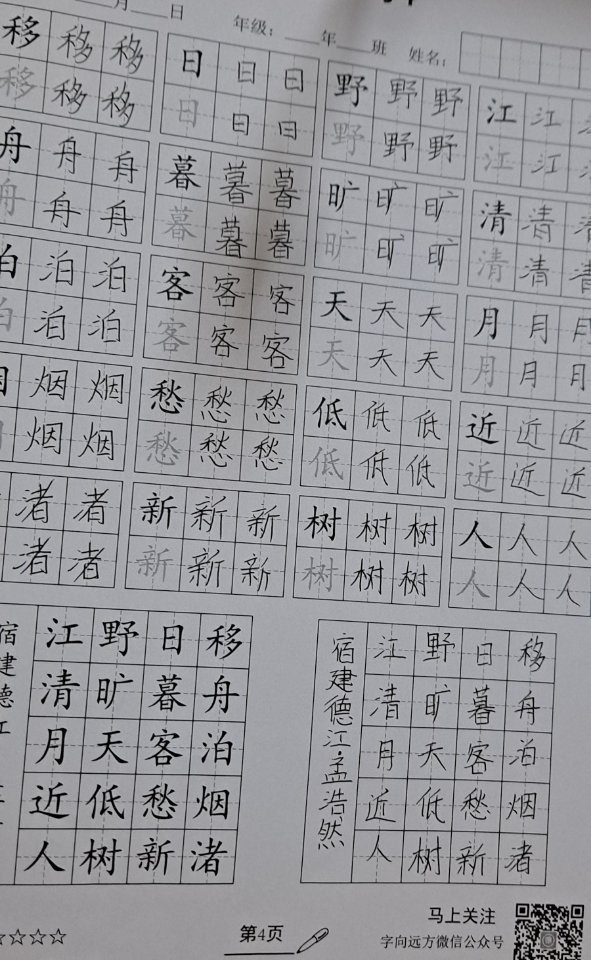 月 日 年级: 年 班 姓名:
移 移 移 日 日 日 野 野 野 江 江
移 移 移 日 日 日 野 野 野 江 江
舟 舟 舟 暮 暮 暮 旷 旷 旷 清 清 清
舟 舟 舟 暮 暮 暮 旷 旷 旷 清 清 清
泊 泊 泊 客 客 客 天 天 天 月 月 月
泊 泊 泊 客 客 客 天 天 天 月 月 月
烟 烟 愁 愁 愁 低 低 低 近 近 近
烟 烟 愁 愁 愁 低 低 低 近 近 近
渚 渚 新 新 新 树 树 树 人 人 人
渚 渚 新 新 新 树 树 树 人 人 人
宿建德江
移舟泊烟渚
日暮客愁新
野旷天低树
江清月近人
宿建德江·孟浩然
移舟泊烟渚
日暮客愁新
野旷天低树
江清月近人
第4页
马上关注
字向远方微信公众号